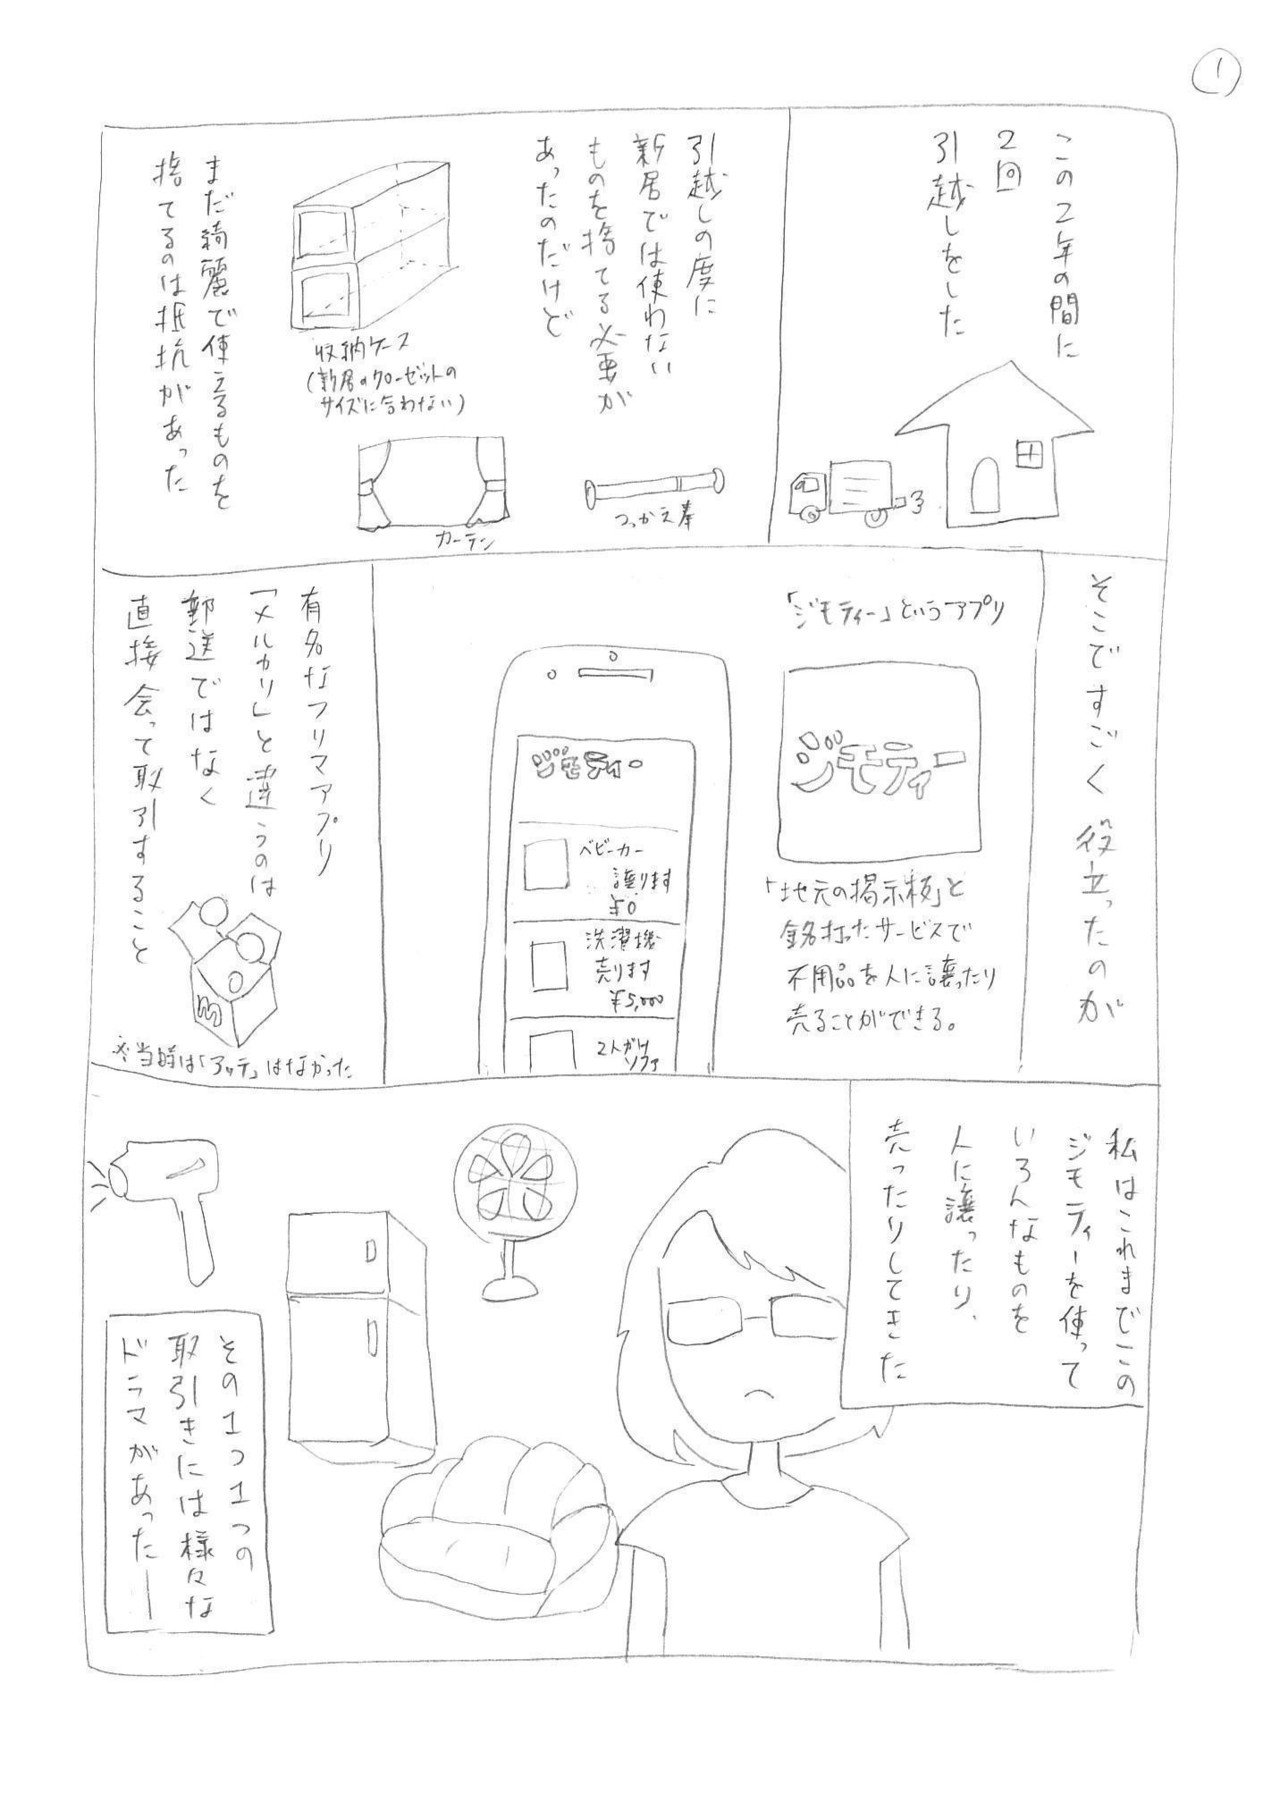 1
この2年の間に
2回
引越しをした
引越しの度に
新居では使わない
ものを捨てる必要が
あったのだけど
収納ケース
(新居のクローゼットの
サイズに合わない)
カーテン
つっかえ棒
まだ綺麗で使えるものを
捨てるのは抵抗があった
そこですごく役立ったのが
「ジモティー」というアプリ
ジモティー
「地元の掲示板」と
銘打ったサービスで
不用品を人に譲ったり
売ることができる。
ジモティー
ベビーカー
譲ります
¥0
洗濯機
売ります
¥5,000
2人がけ
ソファ
有名なフリマアプリ
「メルカリ」と違うのは
郵送ではなく
直接会って取引すること
m
※当時は「アッテ」はなかった
私はこれまでこの
ジモティーを使って
いろんなものを
人に譲ったり、
売ったりしてきた
その1つ1つの
取引きには様々な
ドラマがあった―